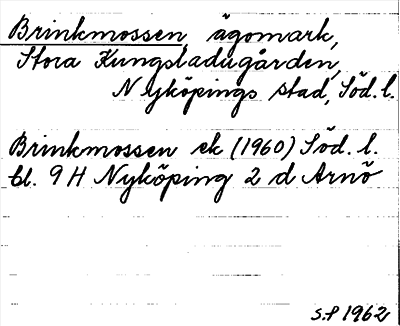 Brinkmossen ägomark,
Stora Kungsladugården,
Nyköpings stad, Söd. l.
Brinkmossen ek (1960) Söd. l.
bl. 9 H Nyköping 2 d Arnö
S.P 1962